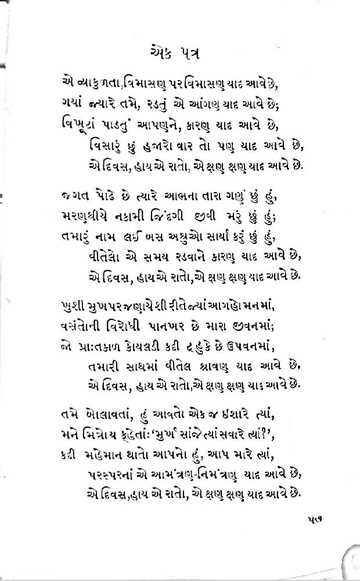 એક પત્ર
એ વ્યાકુળતા, વિમાસણ પર વિમાસણ યાદ આવે છે,
ગયાં જ્યારે તમે, રડતું એ આંગણ યાદ આવે છે;
વિખૂટાં પાડતું આપણને, કારણ યાદ આવે છે,
વિસારું છું હજારો વાર તો પણ યાદ આવે છે,
એ દિવસ, હાય એ રાતો, એ ક્ષણ ક્ષણ યાદ આવે છે.
જગત પોઢે છે ત્યારે આભના તારા ગણું છું હું,
મરણથીયે નકામી જિંદગી જીવી મરું છું હું;
તમારું નામ લઈ બસ અશ્રુઓ સાર્યા કરું છું હું,
વીતેલો એ સમય રડવાને કારણ યાદ આવે છે,
એ દિવસ, હાય એ રાતો, એ ક્ષણ ક્ષણ યાદ આવે છે.
ખુશી સુખ પર જણાયે શી રીતે જ્યાં આગ હો મનમાં,
વસંતોની વિરોધી પાનખર છે મારા જીવનમાં;
જો પ્રાતઃકાળ કોયલડી કદી ટહુકે છે ઉપવનમાં,
તમારી સાથમાં વીતેલ શ્રાવણ યાદ આવે છે,
એ દિવસ, હાય એ રાતો, એ ક્ષણ ક્ષણ યાદ આવે છે.
તમે બોલાવતાં, હું આવતો એક જ ઇશારે ત્યાં,
મને મિત્રોય કહેતાઃ 'મુર્ખ સાંજે ત્યાં સવારે ત્યાં?',
કદી મહેમાન થાતો આપનો હું, આપ મારે ત્યાં,
પરસ્પરનાં એ આમંત્રણ-નિમંત્રણ યાદ આવે છે,
એ દિવસ, હાય એ રાતો, એ ક્ષણ ક્ષણ યાદ આવે છે.
૫૭